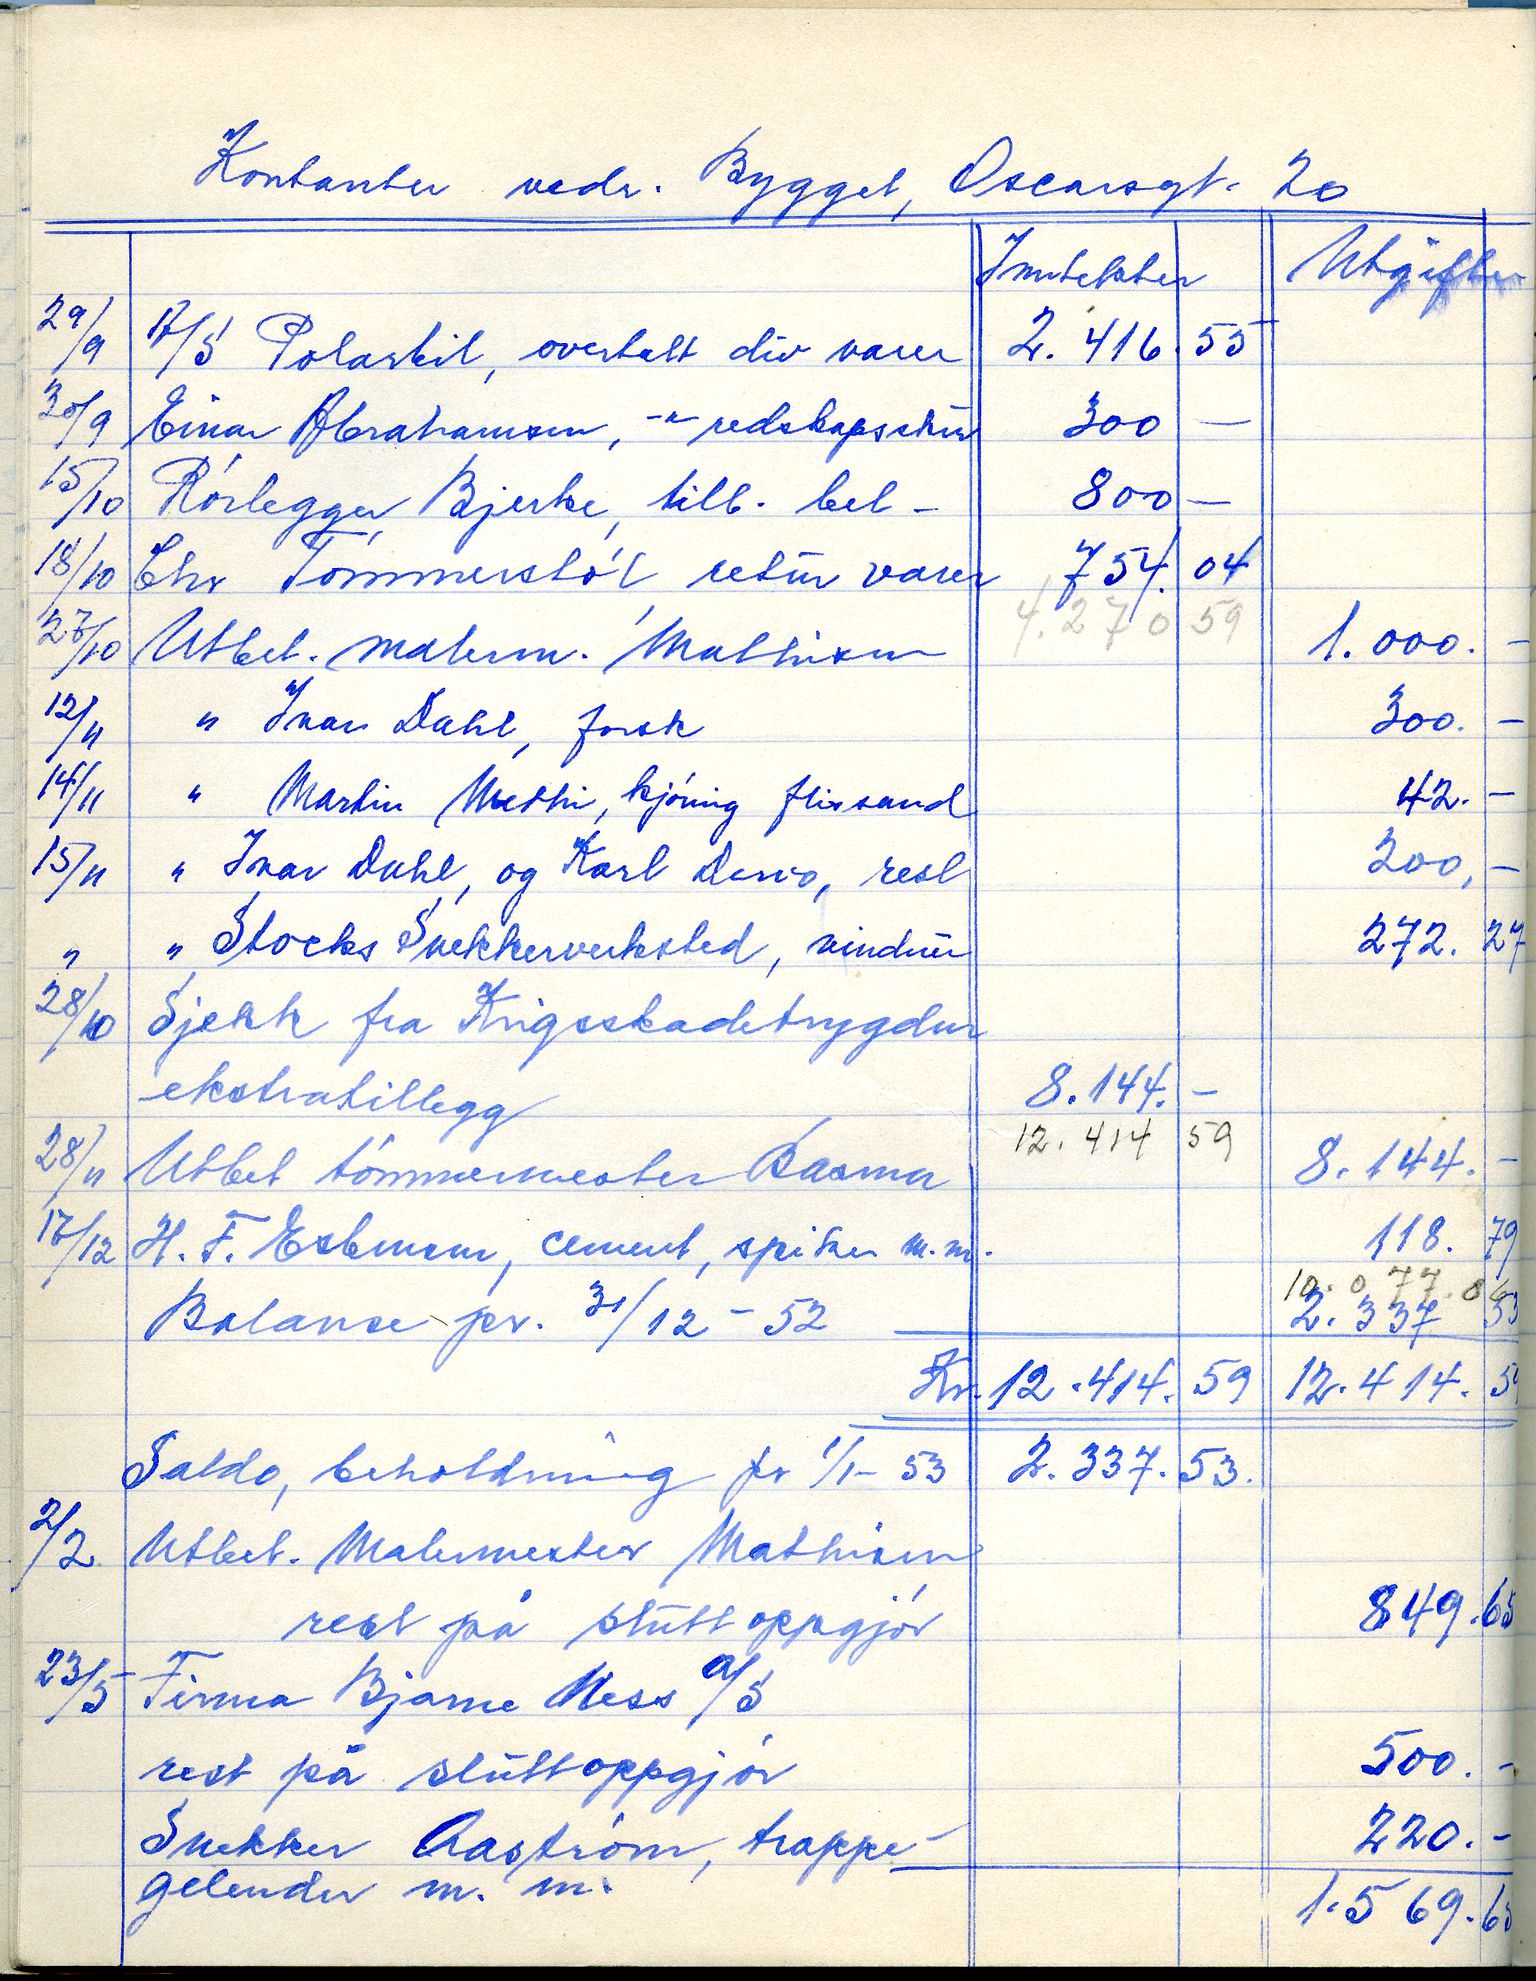 Kontanter vedr. Bygget, Oscarsgt. 20
Inntekter Utgifter
29/9 A/S Polarbil, overtatt div varer 2.416.55
30/9 Einar Abrahamsen, -"- redskapsskur 300 —
15/10 Rörlegger Bjerke, tilb. bel — 800 —
18/10 Chr Tömmerstöl retur varer 754.04
4.270 59
27/10 Utbet. malerm. Mathisen 1.000. —
12/11 " Ivar Dahl, forsk 300. —
14/11 " Martin Methi, kjöring flissand 42. —
15/11 " Ivar Dahl, og Karl rest 200, —
" " Stocks Snekkerverksted, vinduer 272. 27
28/10 Sjekk fra Krigsskadetrygden
ekstratillegg 8.144. —
12.414 59
28/11 Utbet tömmermester Basma 8.144. —
17/12 H. F. Esbensen, cement, spiker m.m. 118. 79
10.077.06
Balanse pr. 31/12 – 52 2.337 53
Kr. 12.414. 59 12.414. 59
Saldo, beholdning pr 1/1– 53 2.337. 53.
2/2 Utbet. Malermester Mathisen
rest på sluttoppgjör 849.65
23/5 Firma Bjarne Ness A/S
rest på sluttoppgjör 500. —
Snekker Aaström, trappe- 220. —
gelender m. m.
1.569.65